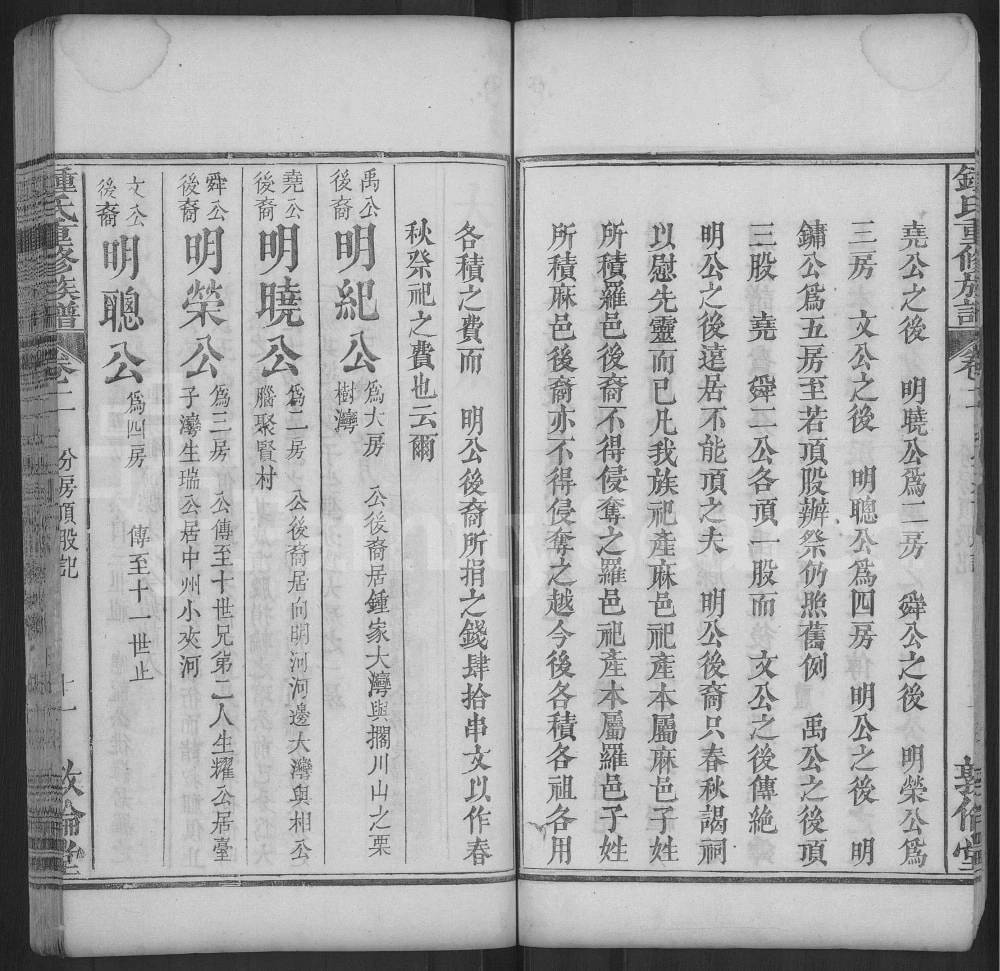 堯公之後　明曉公爲二房　舜公之後　明榮公爲
三房　文公之後　明聰公爲四房　明公之後　明
鏞公爲五房至若頂股辦祭仍照舊例　禹公之後頂
三股　堯　舜二公各頂一股而　文公之後傳絶
明公之後遠居不能頂之夫　明公後裔只春秋謁祠
以慰先靈而已凡我族祀產麻邑祀產本屬麻邑子姓
所積羅邑後裔不得侵奪之羅邑祀產本屬羅邑子姓
所積麻邑後裔亦不得侵奪之越今後各積各祖各用
各積之費而　明公後裔所捐之錢肆拾串文以作春
秋祭祀之費也云爾
禹公後裔　明紀公　爲大房　公後裔居鍾家大灣與擱川山之栗樹灣
堯公後裔　明曉公　爲二房　公後裔居向明河河邊大灣與相公腦聚賢村
舜公後裔　明榮公　爲三房　公傳至十世兄弟二人生耀公居臺子灣生瑞公居中州小夾河
文公後裔　明聰公　爲四房　傳至十一世止
鍾氏重修族譜　卷二　分房頂股記　十一　敦倫堂